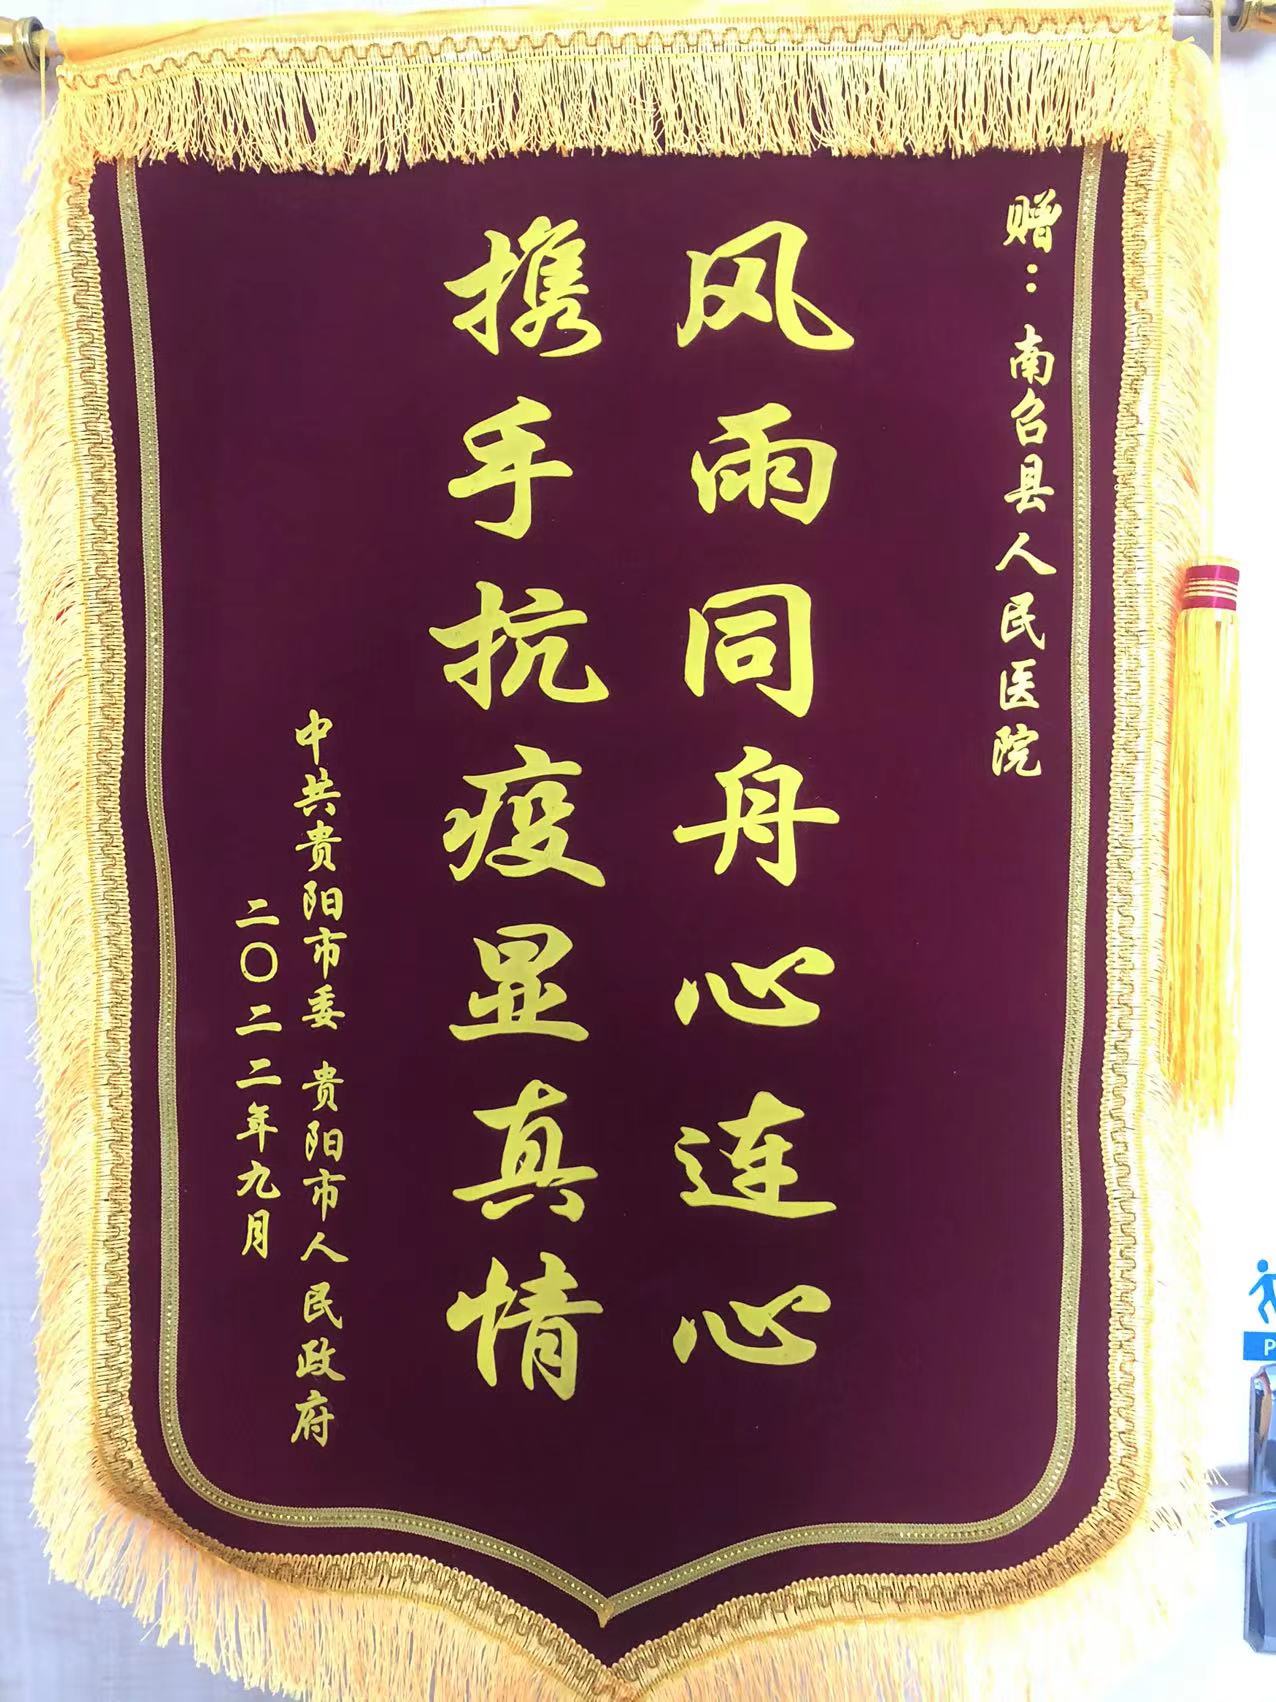 赠：南召县人民医院
风雨同舟心连心
携手抗疫显真情
中共贵阳市委 贵阳市人民政府
二〇二二年九月
P